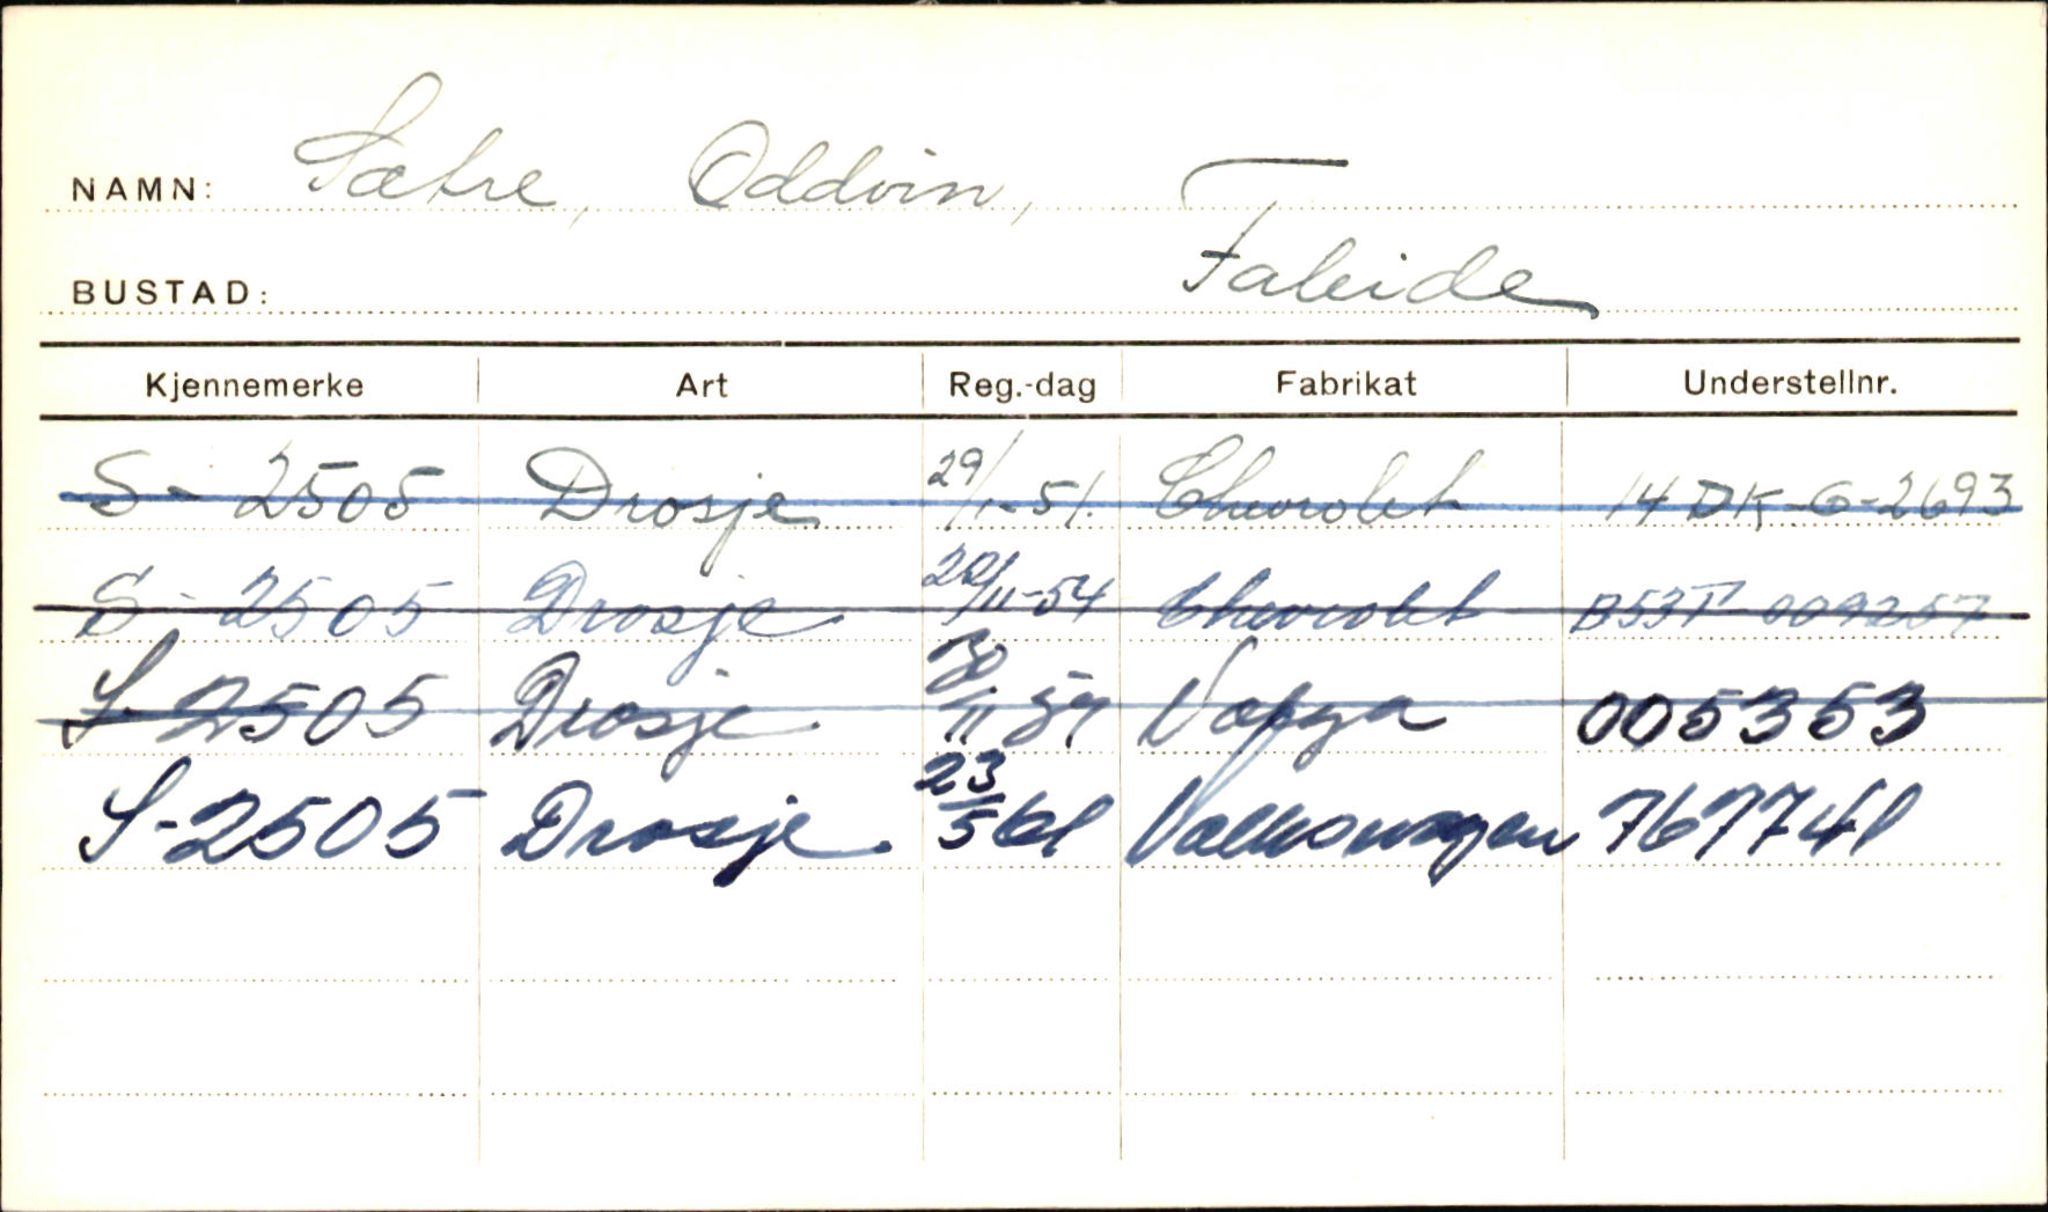 NAMN: Sætre, Oddvin,
BUSTAD: Faleide
Kjennemerke Art Reg.-dag Fabrikat Understellnr.
S - 2505 Drosje 29/1-51. Chevrolet 14 DK-G-2693
S - 2505 Drosje. 20/11-54 Chevrolet B53T-009257
S-2505 Drosje. 30/11 59 Vålga 005353
S-2505 Drosje. 23/5 61 Volkswagen 767741